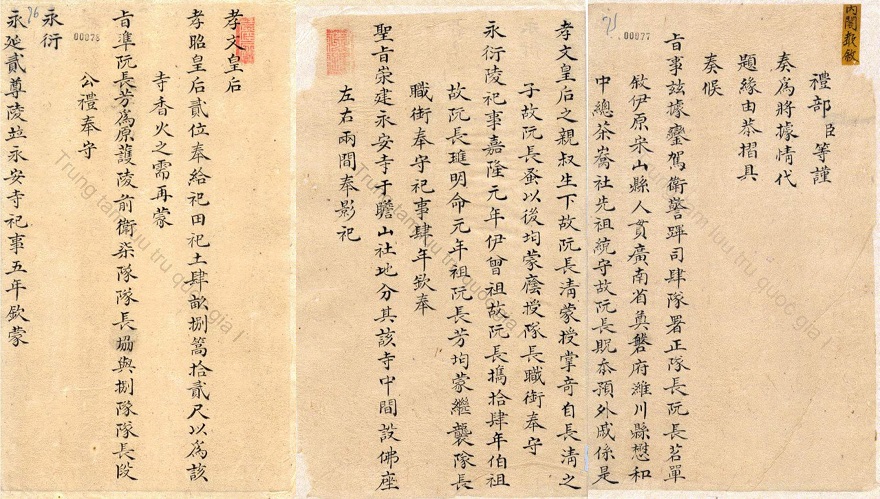 71
00077
禮部臣等謹
奏爲將據情代
題緣由恭摺具
奏候
旨事玆據鑾駕衛警蹕司肆隊署正隊長阮長茗單
敘伊原柴山縣人貫廣南省奠磐府濰川縣懋和
中總茶嶠社先祖統守故阮長既忝預外戚係是
孝文皇后之親叔生下故阮長清蒙授掌奇自長清之
子故阮長蚤以後均蒙廕授隊長職銜奉守
永衍陵祀事嘉隆元年伊曾祖故阮長攜拾肆年伯祖
故阮長璡明命元年祖阮長芳均蒙繼襲隊長
職銜奉守祀事肆年欽奉
聖旨崇建永安寺于瞻山社地分其該寺中間設佛座
左右兩間奉影祀
孝文皇后
孝昭皇后貳位奉給祀田祀土肆畝捌篙拾貳尺以爲該
寺香火之需再蒙
旨準阮長芳爲原護陵前衛柒隊隊長協與捌隊隊長段
公禮奉守
00076
永衍
76
永延貳尊陵竝永安寺祀事五年欽蒙
Trung tam luu tru quoc gia I
Trung tam luu tru quoc gia I
tam luu tru quoc gia I